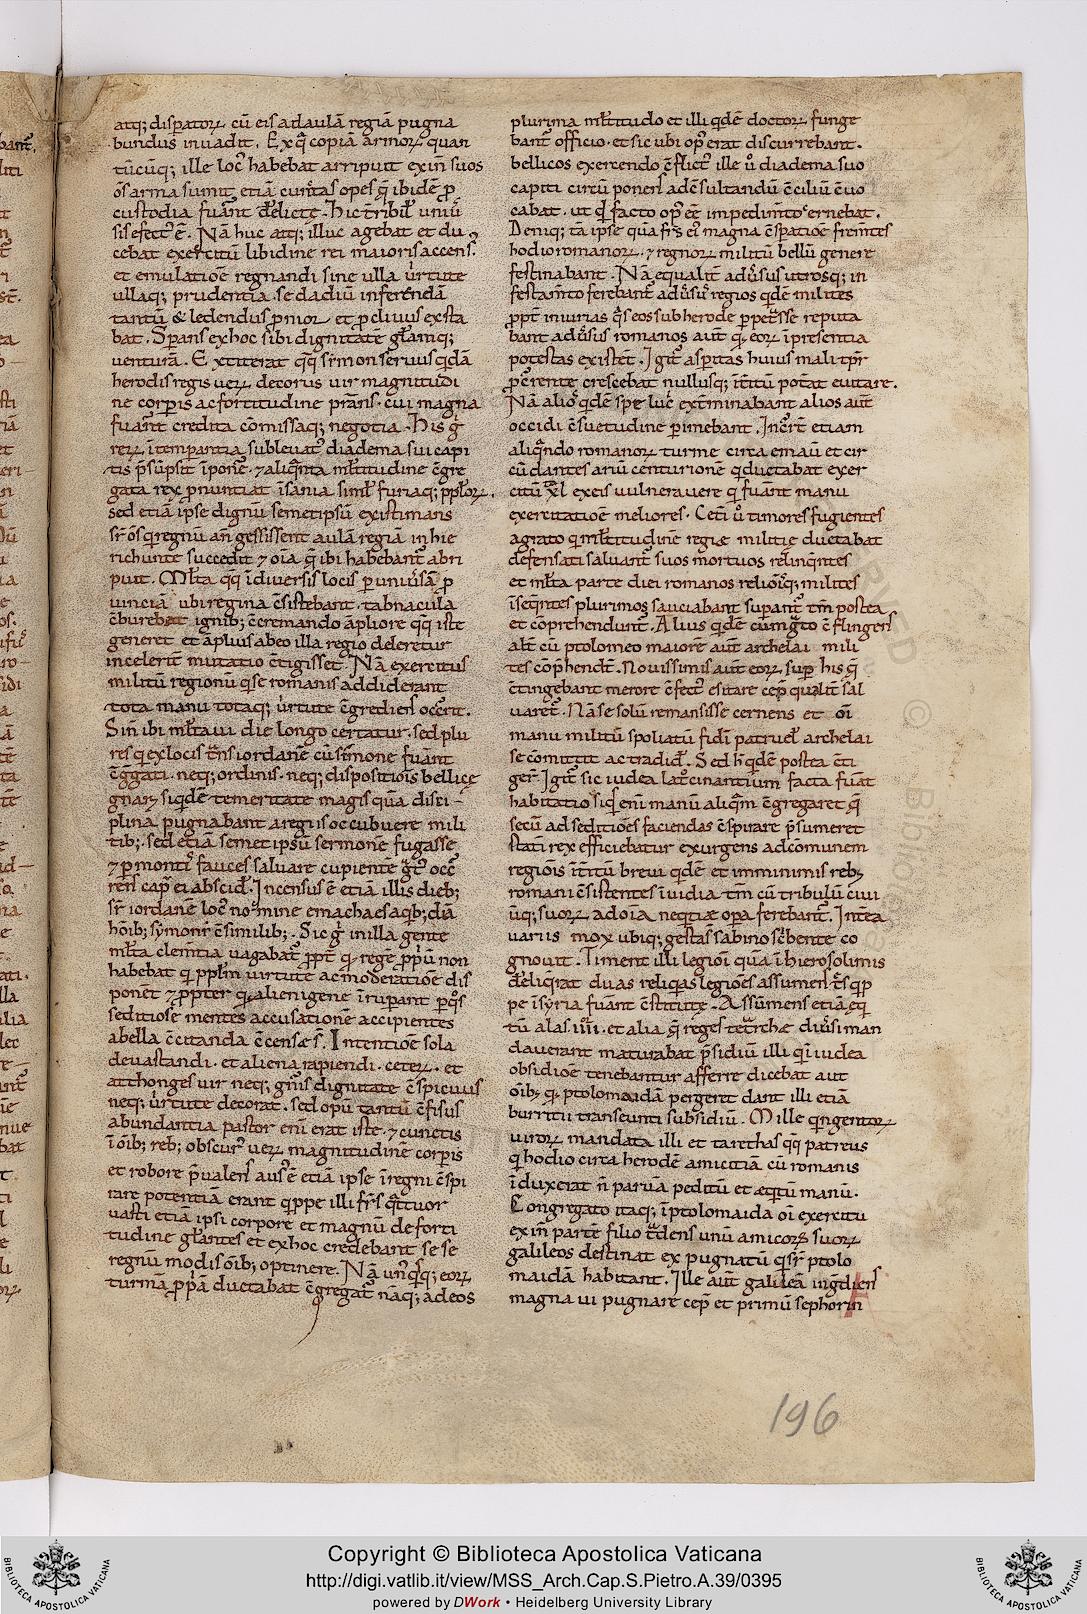 atq; disperatorꝝ cū eis ad aulā regiā pugna
bundus inuadit. Ex q̄ copiā armorꝝ quan
tūcūq; ille locꝰ habebat arripuit exin̄ suos
ōs arma sumit etiā cunctas opes q̄ ibidē ꝓ
custodia fuer̄ant derelicte. Hic tribil' uniū
sis efectꝰ ē. Nā huc atq; illuc agebat et du
cebat exercitū libidine rei maioris accensꝰ.
et emulatiōe regnandi sine ulla uirtute
ullaq; prudentia. se dadiū inferendā
tantū & ledendus p̄mor et ꝓcliuus exsta
bat. Sꝑans ex hoc sibi dignitatē gl̄amq;
venturā. Extiterat q̄q; simon seruus qdā
herodis regis uerꝝ decorus uir magnitudi
ne corꝑis ac fortitudine p̄stans. cui magna
fuer̄ant credita comissaq; negotia. His g̊
rerꝝ ītemꝑantia subleuatꝰ diadema sui capi
tis p̄sūpsit īponē. ⁊ aliq̄nta m̄ltitudine ꝯgre
gata rex ꝓnuntiat īsania simul' furiaq; ppl'orꝝ.
sed etiā ipse dignū semetipsū existimans
sr̄ ōs q regnū an̄ gessissent aulā regiā in hie
richunte succedit ⁊ oīa q̄ ibi habebant̄ abri
puit. Ml̄ta q̄q; ī diuersis locis ꝑ uniūsā ꝓ
uinciā ubi regina ꝯsistebant. tabnacula
ꝯburebat ignib; ꝯcremando āpliore q̄q; iste
generet et āplius ab eo illa regio deleretur
in celerit̄ mutatio ꝯtigisset. Nā exercitus
militū regionū q se romanis addiderant
tota manu totaq; uirtute ꝯgrediens occ̄rit.
Sin̄ ibi ml̄ta ui die longo certatur. sed plu
res q ex locis tr̄ns iordanē cū simone fuer̄ant
ꝯg̊gati. neq; ordinis. neq; dispositiōis bellicę
gnarꝝ siqdē temeritate magis quā disci-
plina pugnabant a regiis occubuere mili
tib;. sed etiā semet ipsū sermone fugasse
⁊ ꝑ montiū fauces saluare cupientē gr̄atꝰ occ̄
rens cap̄ ei abscid̄. Incensus ē etiā illis dieb;
sr̄ iordanē locꝰ nomine emachaesaqb; dā
hōib; symonī ꝯsimilib;. Sic g̊ in illa gente
ml̄ta clem̄tia uagabat̄ ꝓpt̄ q rege ꝓpriū non
habebat q pplm̄ uirtute ac moderatiōe dis
ponēt ⁊ ꝓpter qđ alienigene īrupant ꝑ q̄s
seditiose mentes accusatione accipientes
abella ꝯcitanda ꝯcensæ s̄. Intentiōe sola
deuastandi. et aliena rapiendi. ceterꝝ. et
atthonges uir neq; gn̄is dignitate ꝯspicuus
neq; uirtute decorat. sed opū tantū ꝯfisus
abundantia pastor eni erat iste. ⁊ cunctis
ī ōib; reb; obscurꝰ uerꝝ magnitudine corꝑis
et robore p̄ualens ausꝰ ē etiā ipse ī regni ꝯspi
rare potentiā erant qppe illi fr̄s q̄ttuor
uasti etiā ipsi corpore et magnū de forti
tudine gl̄antes et ex hoc credebant se se
regnū modis ōib; optinere. Nā unꝰqsq; eorꝝ
turmā ꝓpriā ductabat ꝯgregatꝰ nāq; ad eos
plurima ml̄titudo et illi qdē doctorꝝ funge
bant̄ officio. et sic ubi opꝰ erat discurrebant.
bellicos exercendo ꝯflictꝰ ille ū diadema suo
capiti circū ponens ad ꝯsultandū ꝯciliū ꝯuo
cabat. ut qd facto opꝰ eēt impedim̄to cernebat.
Deniq; tā ipse quā fr̄s eiꝰ magna ꝯspiratioē frem̄tes
hodio romanorꝝ. ⁊ regnorꝝ militū bellū genere
festinabant. Nā equalit̄ aduersus utrosq; in
festam̄to ferebant̄ aduersū regios qdē milites
ꝓpt̄ iniurias q̄s eos sub herode ꝑpetisse reputa
bant aduersus romanos aut̄ qđ eorꝝ ī presentia
potestas existēt. Igit̄ asꝑitas huius mali tꝑr̄
ꝓcedente crescebat nullusq; ītētū poterat euitare.
Nā alios qdē spe lucri ext̄minabant alios aūt
occidi ꝯsuetudine ꝑimebant. Incert̄ etiam
aliq̄ndo romanorꝝ turme circa emaū et cir
cūdantes ariū centurionē q ductabat exer
citū xl ex eis uulnerauere q fuerant manu
exercitatiōe meliores. Cet̄i ū timores fugientes
a grato q m̄ltitudinē regię militię ductabat
defensati saluant̄ suos mortuos relinq̄ntes
et ml̄ta parte diei romanos reliq̄sq; milites
īseq̄ntes plurimos sauciabant suꝑant̄ tm̄ postea
et cōprehendunt̄. Alius qdē cum grato ꝯflingens
alt̄ cū ptolomeo maiore aūt archelai mili
tes cōp̄hendit̄. Nouissimis aūt eorꝝ suꝑ his q̄
ꝯtingebant merore ꝯfectꝰ esitare cep̄ qualit̄ sal
uaret̄. Nā se solū remansisse cernens et oī
manu militū spoliatū fidi patruel' archelai
se comittit ac tradid̄. Sed hꝰ qdē postea ꝯti
ger̄. Igit̄ sic iudea latꝰcinantium facta fuerat
habitatio siqs̄ enī manū aliq̄m ꝯgregaret q̄
secū ad seditiōes faciendas ꝯspirare p̄sumeret
statī rex efficiebatur exurgens ad comunem
regiōis īt̄itū breui qdē et imminimis reb;
romani ꝯsistentes īuidia tm̄ cū tribulū cuui
ūq; suorꝝ ad oīa neq̄tiæ oꝑa ferebant̄. Intea
uariis mox ubiq; gestasꝰ sabino scribente co
gnouit. Timent illi legioni quā ī hierosolimis
dereliq̄rat duas reliq̄as legiōes assumens t̄s qp
pe ī syria fuerant ꝯstitute. Assūmens etiā eq
tū alas iiii. et alia q̄ reges tetrarchæ diūsi man
dauerant maturabat p̄sidiū illi q ī iudea
obsidioē tenebantur afferre dicebat aut
ōib; qđ ptolomaidā pergeret dant illi etiā
burrtii transeunti subsidiū. Mille qngentorꝝ
uirorꝝ mandata illi et tarethas q̄q; patreus
q hodio circa herodē amicitiā cū romanis
īduxerat n̄ paruā peditū et æqtū manū.
Congregato itaq; ī ptolomaida oī exercitu
ex in̄ parte filio tradens unū amicorꝝ suorꝝ
galileos destinat ex pugnatū q sr̄ ptolo
maidā habitant. Ille aūt galileā ingrediens
magna ui pugnare cep̄ et primū sephorin
196
Copyright © Biblioteca Apostolica Vaticana
http://digi.vatlib.it/view/MSS_Arch.Cap.S.Pietro.A.39/0395
powered by DWork • Heidelberg University Library